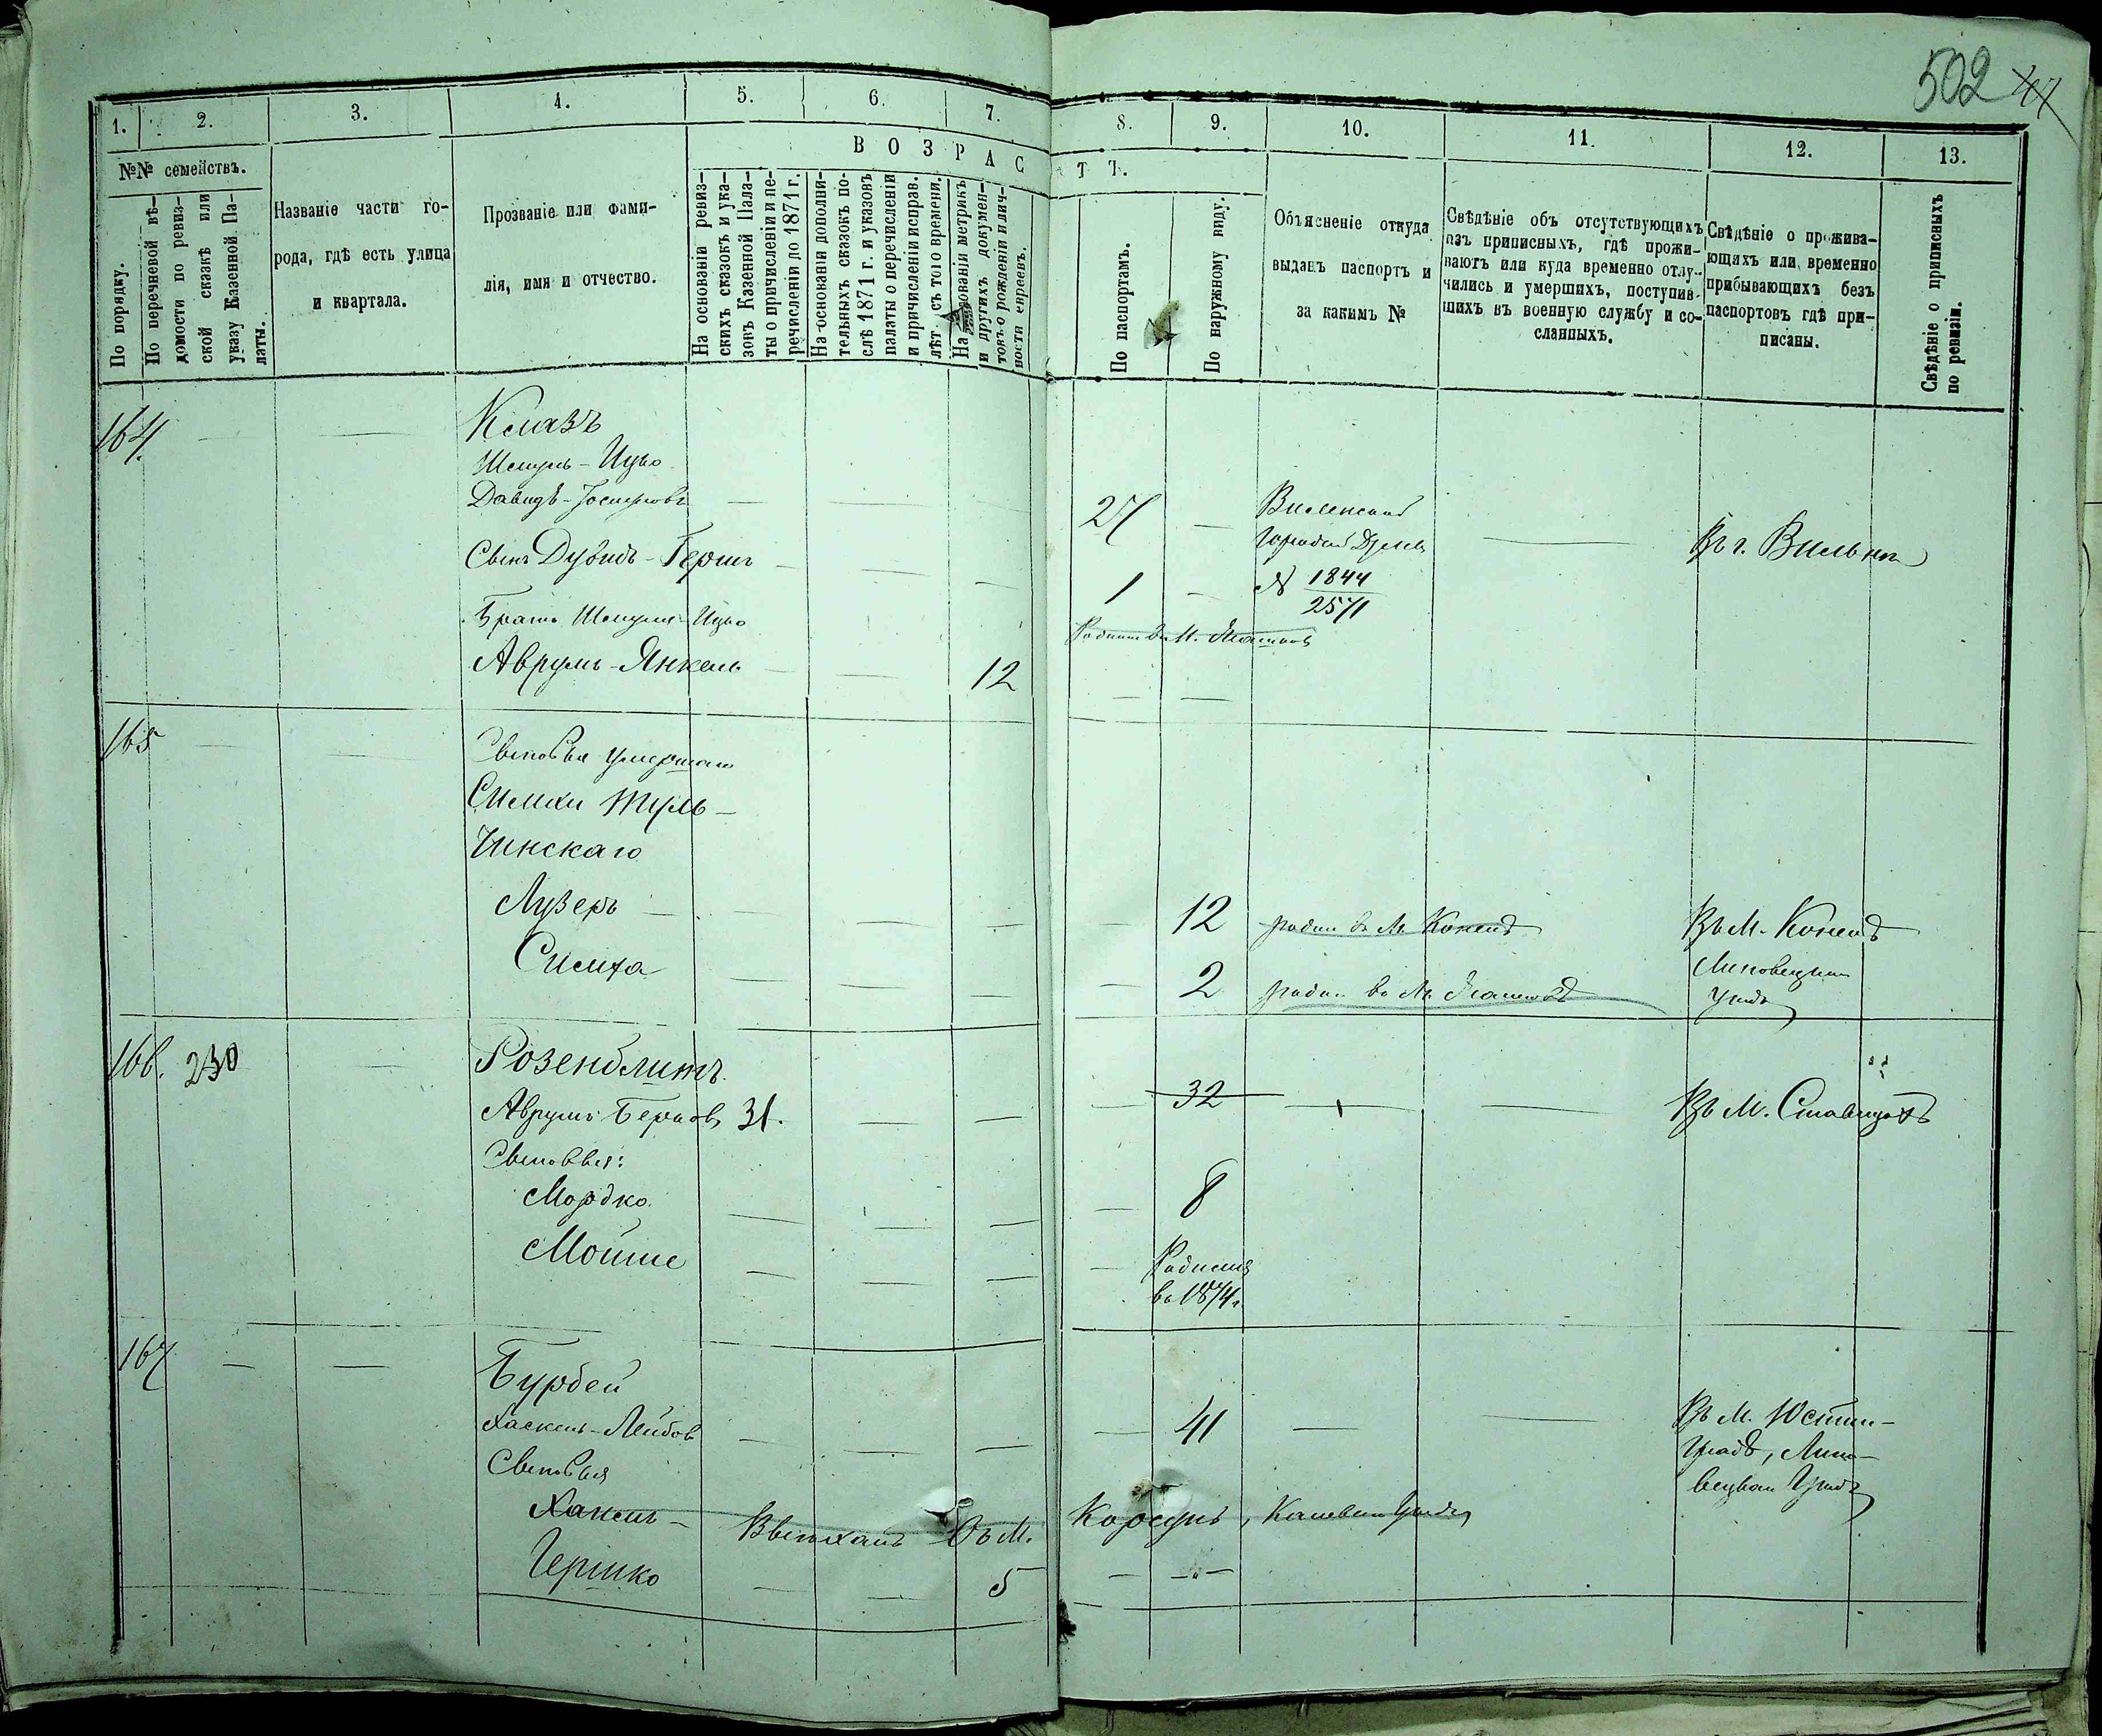 502
1.
2.
3.
4.
5.
6.
7.
8.
9.
10.
11.
12.
13.
№№ семействъ.
По порядку.
По перечневой вѣ-
домости по ревиз-
ской сказкѣ или
указу Казенной Па-
латы.
Названіе части го-
рода, гдѣ есть улица
и квартала.
Прозваніе или фами-
лія, имя и отчество.
ВОЗРАСТЪ.
На основаніи ревиз-
скихъ сказокъ и ука-
зовъ Казенной Пала-
ты о причисленіи и пе-
речисленіи до 1871 г.
На основаніи дополни-
тельныхъ сказокъ по-
слѣ 1871 г. и указовъ
палаты о перечисленіи
и причисленіи исправ.
лѣт. съ того времени.
На основаніи метрикъ
и другихъ докумен-
товъ о рожденіи и лич-
ности евреевъ.
По паспортамъ.
По наружному виду.
Объясненіе откуда
выданъ паспортъ и
за какимъ №
Свѣдѣніе объ отсутствующихъ
изъ приписныхъ, гдѣ прожи-
ваютъ или куда временно отлу-
чились и умершихъ, поступив-
шихъ въ военную службу и со-
сланныхъ.
Свѣдѣніе о прожива-
ющихъ или временно
прибывающихъ безъ
паспортовъ гдѣ при-
писаны.
Свѣдѣніе о приписныхъ
по ревизіи.
164.
Шмуль-Ицко
Давидъ-Іосиповъ
27
Виленской
Городск. Думы
Въ г. Вильнѣ
Сынъ Дувидъ-Герш
1
№ 1844
2571
Братъ Шмуля-Ицко
Аврумъ-Янкель
12
165
Сыновья умершаго
Симхи Туль-
чинскаго
Лузеръ
12
родил. въ м. Конелѣ
Въ м. Конелѣ
Симха
2
родил. въ м.
Липовецкаго
Уѣзда
166. 230
Розенблитъ
Аврумъ Берков. 31.
32
Въ м. Ставищахъ
Сыновья:
Мордко
8
Мойше
Родился
въ 1874 г.
167
Бурбей
Хаскель-Лейбов
41
Въ м. Юстин-
градѣ, Липо-
вецкаго Уѣзда
Сыновья
Выѣхалъ въ м. Корсунь, Каневскаго Уѣзда
Гершко
5